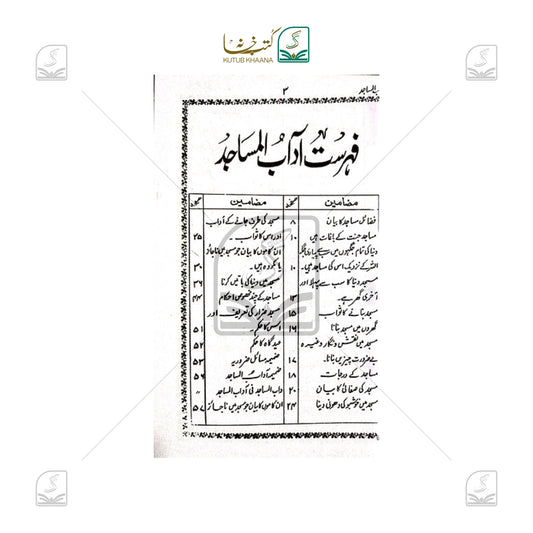 کتب خانہ
KUTUB KHAANA
۳
المساجد
فہرست آداب المساجد
مضامین صفحہ مضامین صفحہ
فضائل مساجد کا بیان ۸
مساجد جنت کے باغات ہیں ۱۰
دنیا کی تمام جگہوں میں سے پیاری جگہ
اللہ کے نزدیک اس کی مساجد ہیں۔ ۱۰
مسجد دنیا کا سب سے پہلا اور
آخری گھر ہے۔ ۱۳
مسجد بنانے کا ثواب ۱۵
گھروں میں مسجد بنانا ۱۶
مسجد میں نقش و نگار وغیرہ
بے ضرورت چیزیں بنانا۔ ۱۷
مساجد کے درجات ۱۸
مسجد کی صفائی کا بیان ۲۰
مسجد میں خوشبو کی دھونی دینا ۲۴
مسجد کی طرف جانے کے آداب
اور اس کا ثواب۔ ۲۵
ان کاموں کا بیان جو مسجد میں ناجائز
یا مکروہ ہیں۔ ۳۰
مسجد میں دنیا کی باتیں کرنا ۳۶
مساجد کے چند مخصوص احکام ۴۴
مسجد ضرار کی تعریف اور
اس کا حکم۔ ۵۱
عیدگاہ کا حکم ۵۲
ضمیمہ مسائل ضروریہ ۵۳
ضمیمہ آداب المساجد ۵۶
داب المساجد فی آداب المساجد 〃
ان کاموں کا بیان جو مسجد میں ناجائز ۵۷